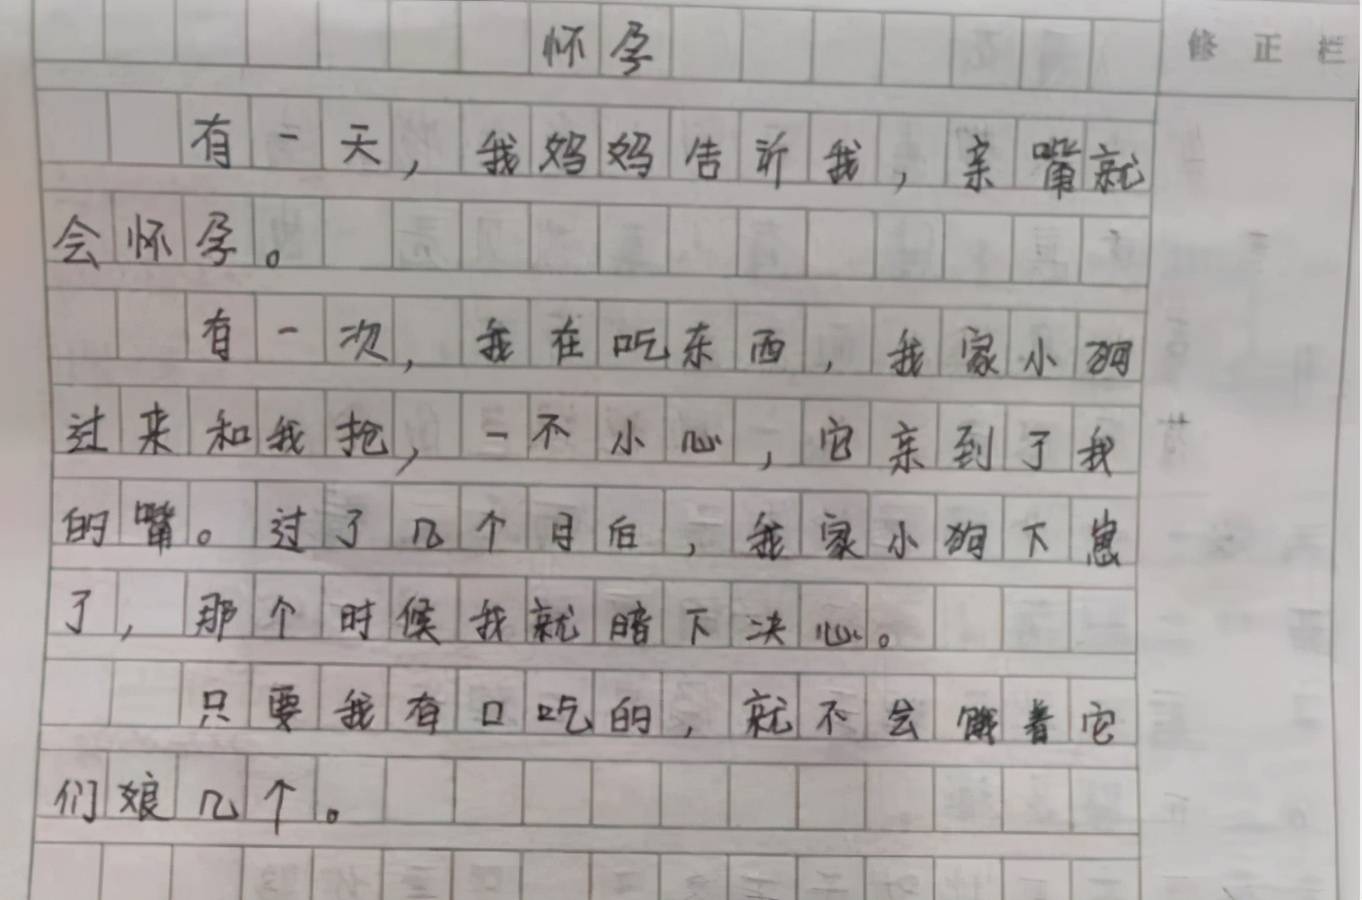 怀孕
修正栏
有一天，我妈妈告诉我，亲嘴就
会怀孕。
有一次，我在吃东西，我家小狗
过来和我抢，一不小心，它亲到了我
的嘴。过了几个月后，我家小狗下崽
了，那个时候我就暗下决心。
只要我有口吃的，就不会饿着它
们娘几个。